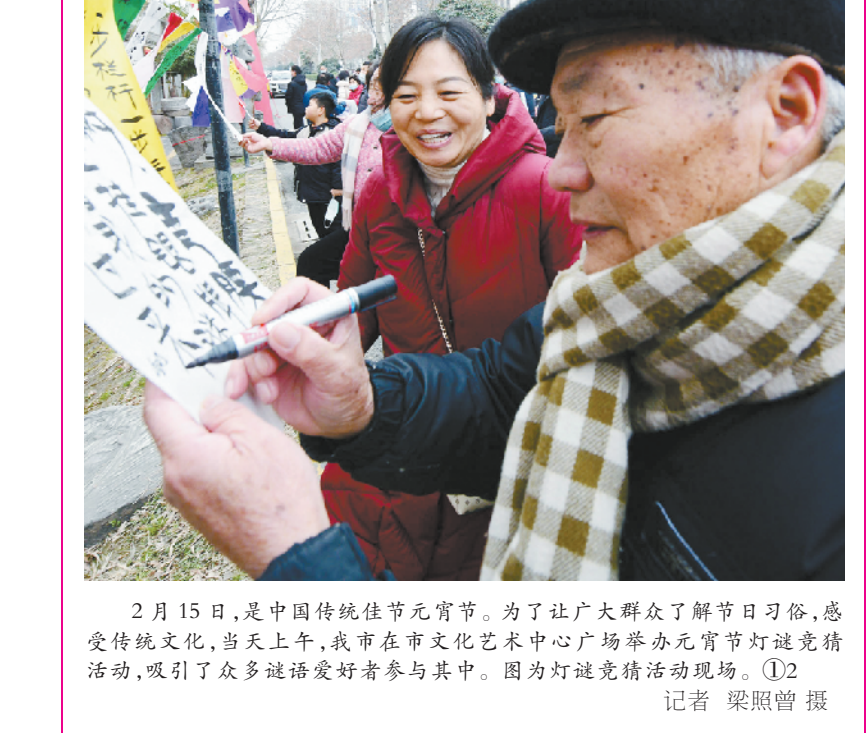 步栏行一
2月15日,是中国传统佳节元宵节。为了让广大群众了解节日习俗,感
受传统文化,当天上午,我市在市文化艺术中心广场举办元宵节灯谜竞猜
活动,吸引了众多谜语爱好者参与其中。图为灯谜竞猜活动现场。①2
记者 梁照曾 摄